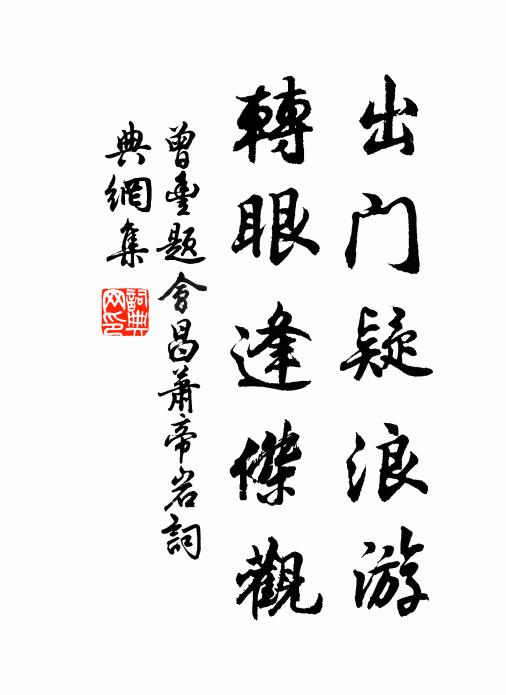 出门疑浪游
轉眼逢傑觀
曾豊題會昌蕭帝岩詞
典網集
詞典
网印